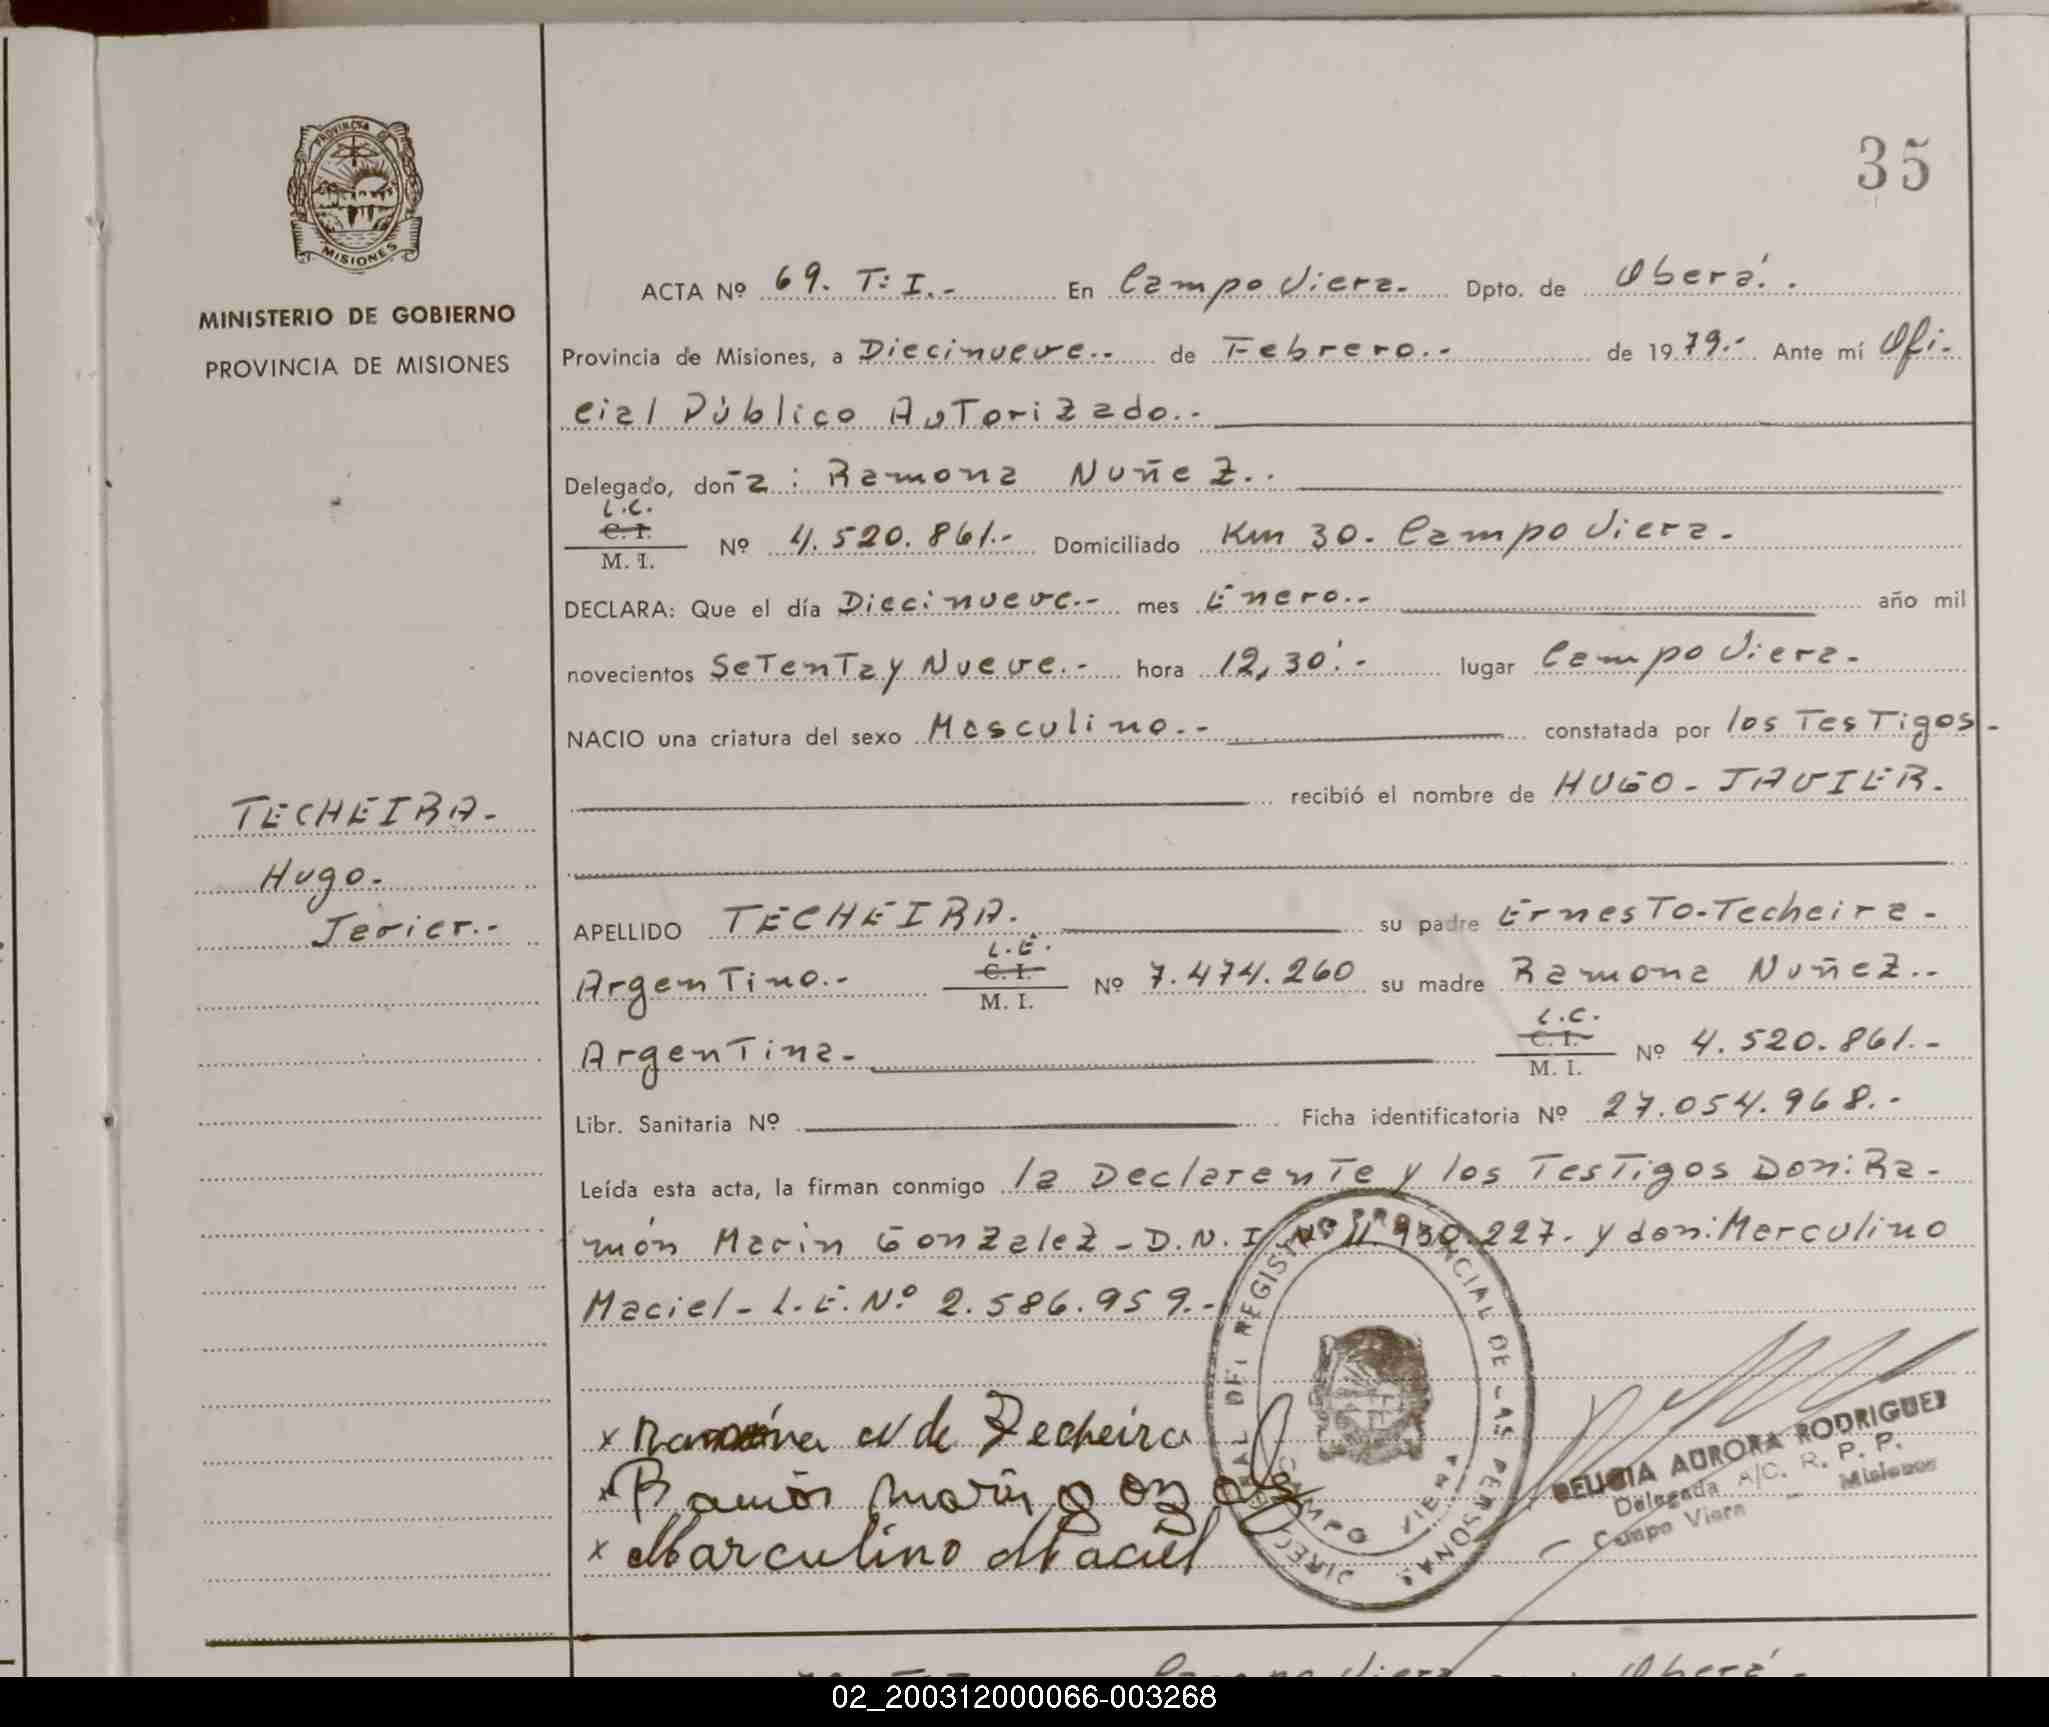 35
PROVINCIA DE
MISIONES
MINISTERIO DE GOBIERNO
PROVINCIA DE MISIONES
ACTA Nº 69. T: I.- En Campo Viera.- Dpto. de Oberá.
Provincia de Misiones, a Diecinueve.- de Febrero.- de 1979.- Ante mí Ofi-
cial Público AuTorizado.-
Delegado, doña: Ramona Nuñez.-
L.C.
C. I.
M. I. Nº 4.520.861.- Domiciliado Km 30. Campo Viera.-
DECLARA: Que el día Diecinueve.- mes Enero.- año mil
novecientos SeTenTa y Nueve.- hora 12,30'.- lugar Campo Viera.-
NACIO una criatura del sexo Masculino.- constatada por los TesTigos-
recibió el nombre de HUGO-JAVIER.
TECHEIRA-
Hugo-
Javier.-
APELLIDO TECHEIRA. su padre ErnesTo-Techeira-
L.E.
Argentino.- C. I.
M. I. Nº 7.474.260 su madre Ramona Nuñez.-
L.C.
Argentina- C. I.
M. I. Nº 4.520.861.-
Libr. Sanitaria Nº Ficha identificatoria Nº 27.054.968.-
Leída esta acta, la firman conmigo la Declarante y los TesTigos Don: Ra-
món Marin Gonzalez - D.N.I. Nº 11.930.227. y don: Marculino
Maciel - L.E. Nº 2.586.959.-
x Ramona N de Techeira
x Ramón Marin gonzalez
x Marculino Maciel
DEL REGISTRO PROVINCIAL DE LAS PERSONAS
CAMPO VIERA
DELICIA AURORA RODRIGUEZ
Delegada A/C. R. P. P.
Campo Viera - Misiones
Campo Viera Oberá.
02_200312000066-003268